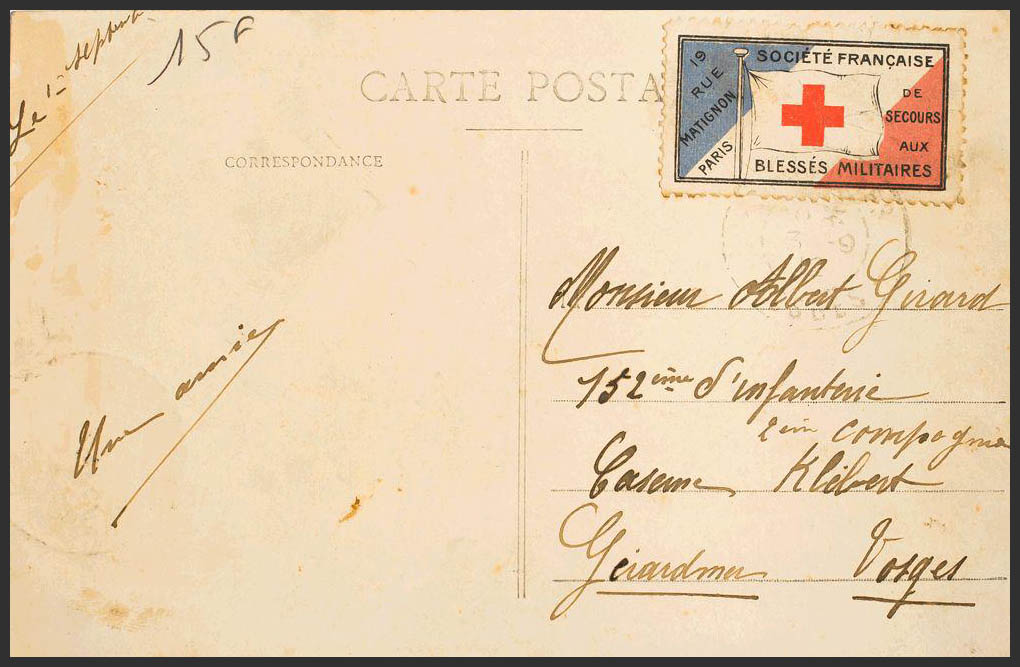 Le 1er septembre
15 F
CARTE POSTA
CORRESPONDANCE
19
RUE
MATIGNON
PARIS
SOCIÉTÉ FRANÇAISE
DE
SECOURS
AUX
BLESSÉS MILITAIRES
Monsieur Albert Girard
152ème d'infanterie
2ème compagnie
Caserne Klébert
Gérardmer Vosges
Une amie